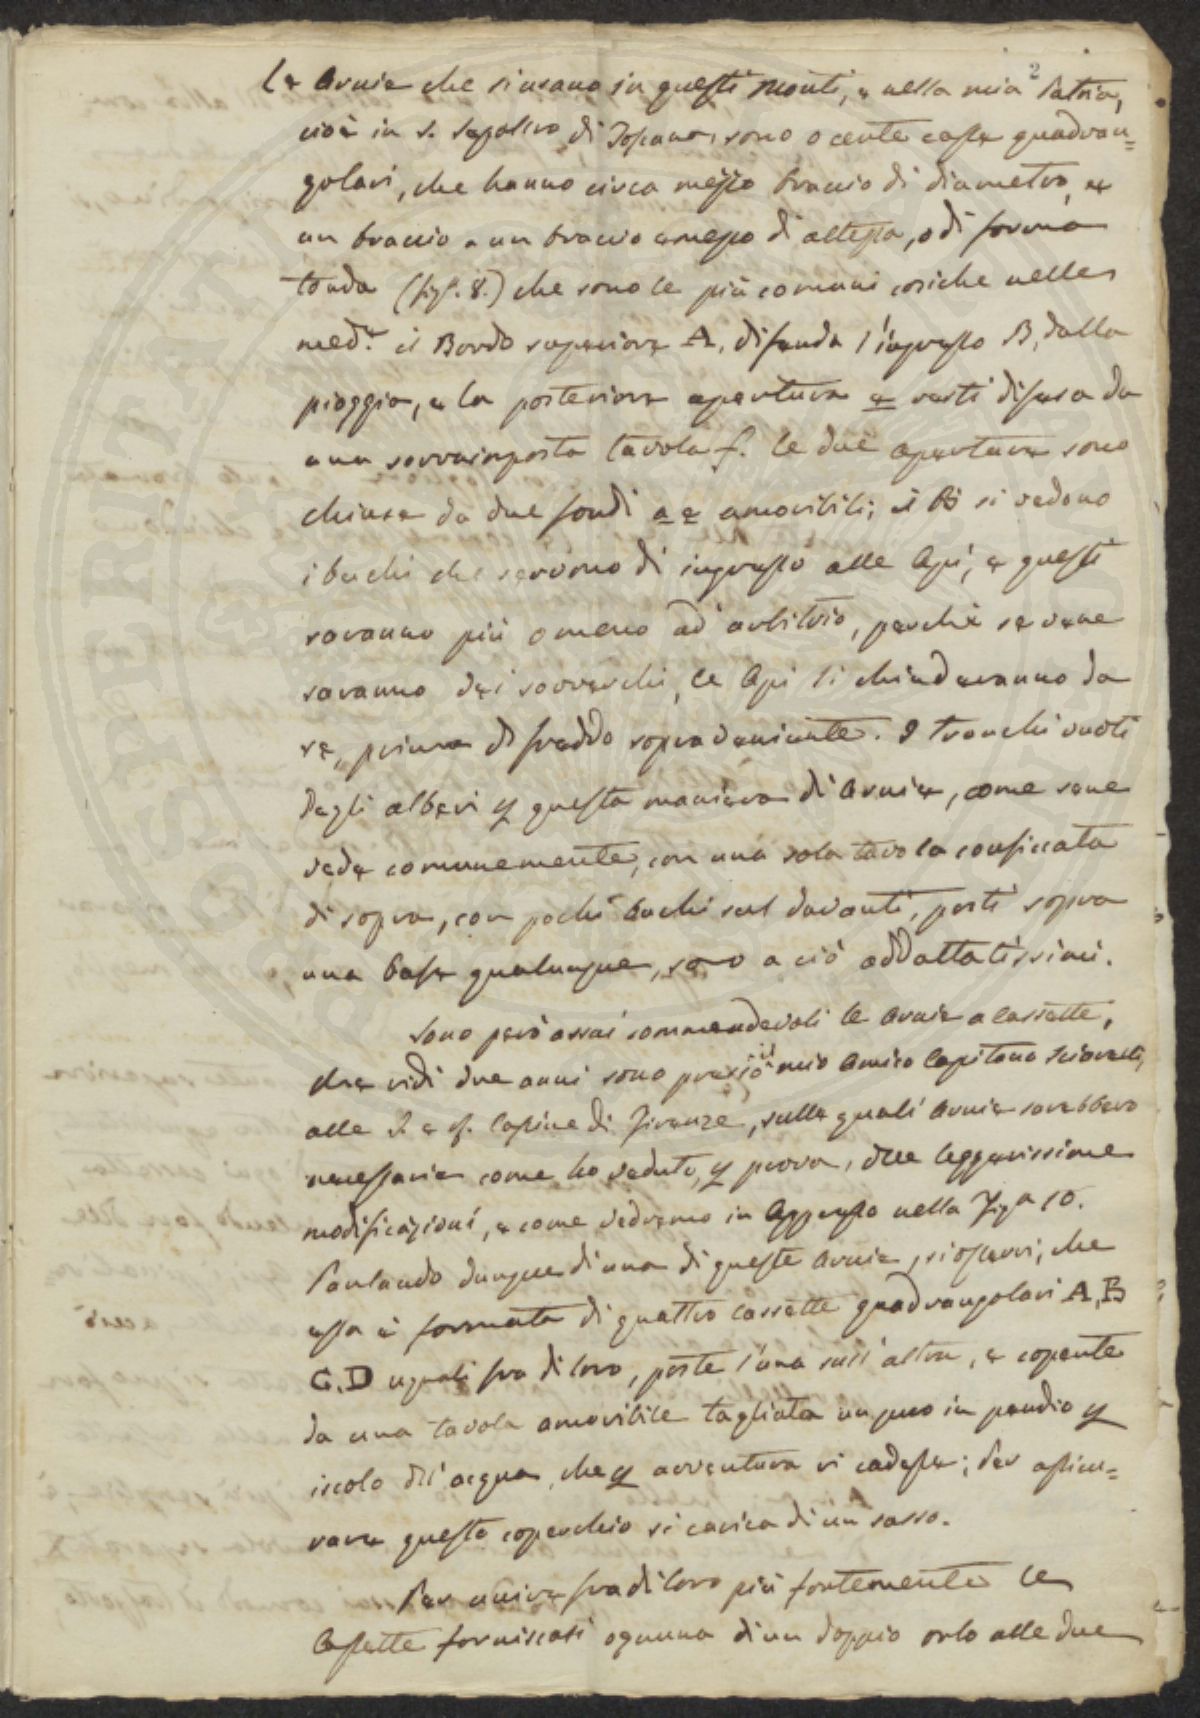 2
Le Arnie che si usano in questi Monti, e nella mia Patria,
cioè in S. Sepolcro di Toscana, sono o certe casse quadran=
golari, che hanno circa mezzo braccio di diametro, e
un braccio a un braccio e mezzo di altezza, o di forma
tonda (fig. 8.) che sono le più comuni cosiche nelle
med.e il Bordo superiore A, difenda l'ingresso B, dalla
pioggia, e la posteriore apertura e resti difesa da
una sovraimposta tavola f. le due aperture sono
chiuse da due fondi a e amovibili; il B si vedono
i buchi che servono di ingresso alle Api, e questi
saranno più o meno ad arbitrio, perchè se vene
saranno dei soverchi, le Api li chiuderanno da
se, prima freddo sopraveniente. I tronchi vuoti
degli alberi p questa maniera di Arnie, come sene
vede comunemente, con una sola tavola conficcata
di sopra, con pochi buchi sul davanti, posti sopra
una base qualunque, sono a ciò addattatissimi.
Sono però assai commendevoli le Arnie a cassette,
che vidi due anni sono presso il mio Amico Capitano
alle I. e R. Cascine di Firenze, sulle quali Arnie sarebbero
necessarie come ho veduto, p prova, due leggerissime
modificazioni, e come vedremo in Appresso nella Fig.a 10.
Parlando dunque di una di queste Arnie, si osservi, che
essa è formata di quattro cassette quadrangolari A, B
C. D uguali fra di loro, poste l'una sull'altra, e coperte
da una tavola amovibile tagliata un poco in pendio p
iscolo dell'acqua, che p avventura vi cadesse; Per assicu=
rare questo coperchio si carica di un sasso.
Per unire fra di loro più fortemente le
Cassette forniscasi ognuna di un doppio orlo alle due